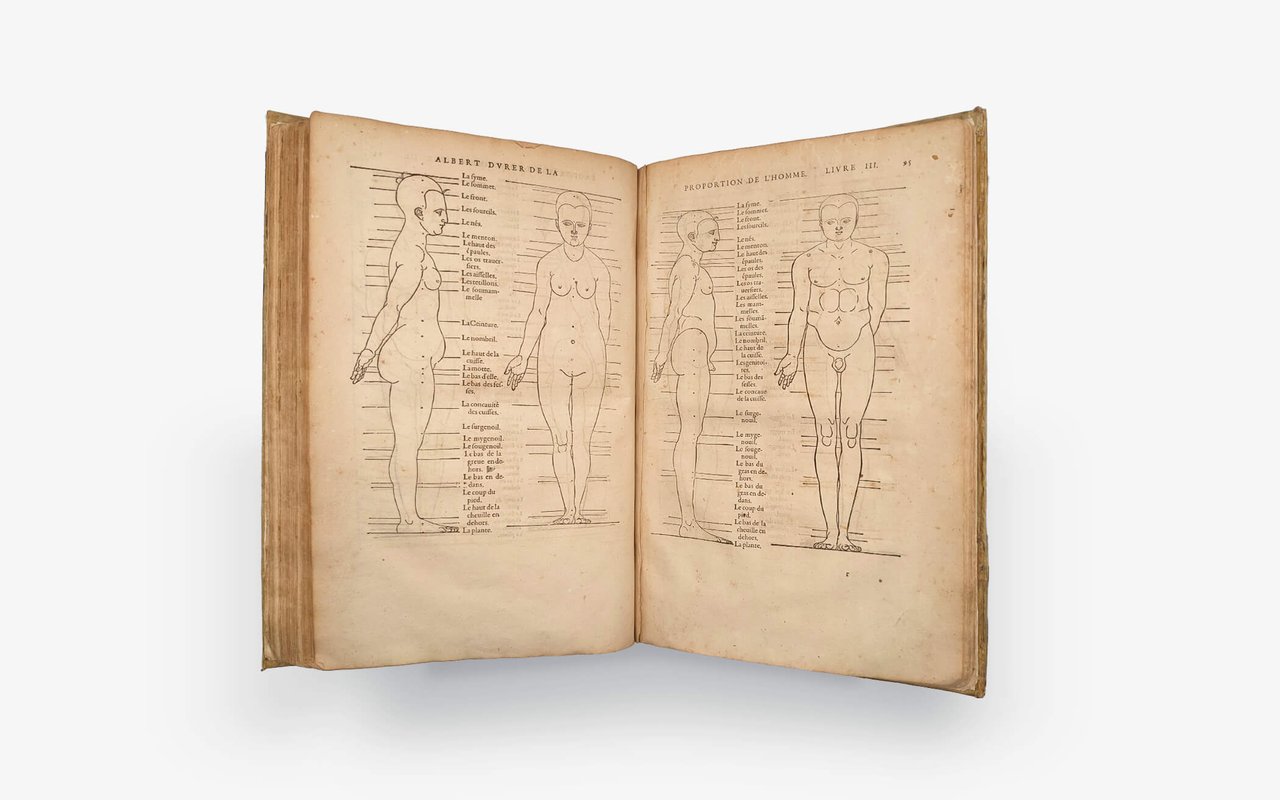 ALBERT DVRER DE LA
La syme.
Le sommet.
Le front.
Les sourcils.
Le nés.
Le menton.
Le haut des
épaules.
Les os trauer-
siers.
Les aisselles.
Les teillons.
Le soumam-
melle
La Ceinture.
Le nombril.
Le haut de la
cuisse.
La motte.
Le bas d'elle.
Le bas des fes-
ses.
La concauité
des cuisses.
Le surgenoil.
Le mygenoil.
Le sougenoil.
Le bas de la
greue en de-
hors.
Le bas en de-
dans.
Le coup du
pied.
Le haut de la
cheuille en
dehors.
La plante.
PROPORTION DE L'HOMME. LIVRE III. 95
La syme.
Le sommet.
Le front.
Les sourcils.
Le nés.
Le menton.
Le haut des
épaules.
Les os des
épaules.
Les os tra-
uersiers.
Les aisselles.
Les mam-
melles.
Les soumā-
melles.
La ceinture.
Le nombril.
Le haut de
la cuisse.
Les genitoi-
res.
Le bas des
fesses.
Le concaue
de la cuisse.
Le surge-
nouil.
Le myge-
nouil.
Le souge-
nouil.
Le bas du
gras en de-
hors.
Le bas du
gras en de-
dans.
Le coup du
pied.
Le bas de la
cheuille en
dehors.
La plante.